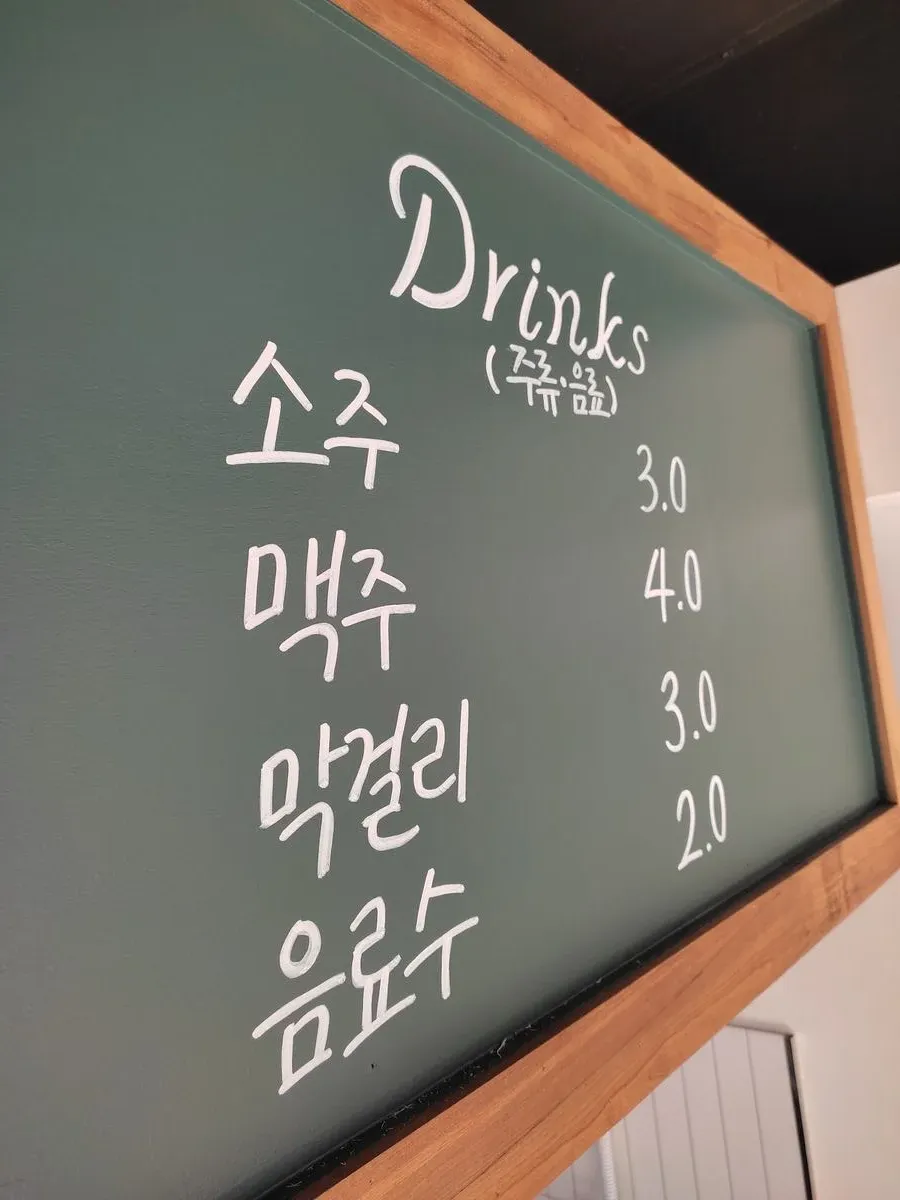 Drinks
(주류·음료)
소주 3.0
맥주 4.0
막걸리 3.0
음료수 2.0